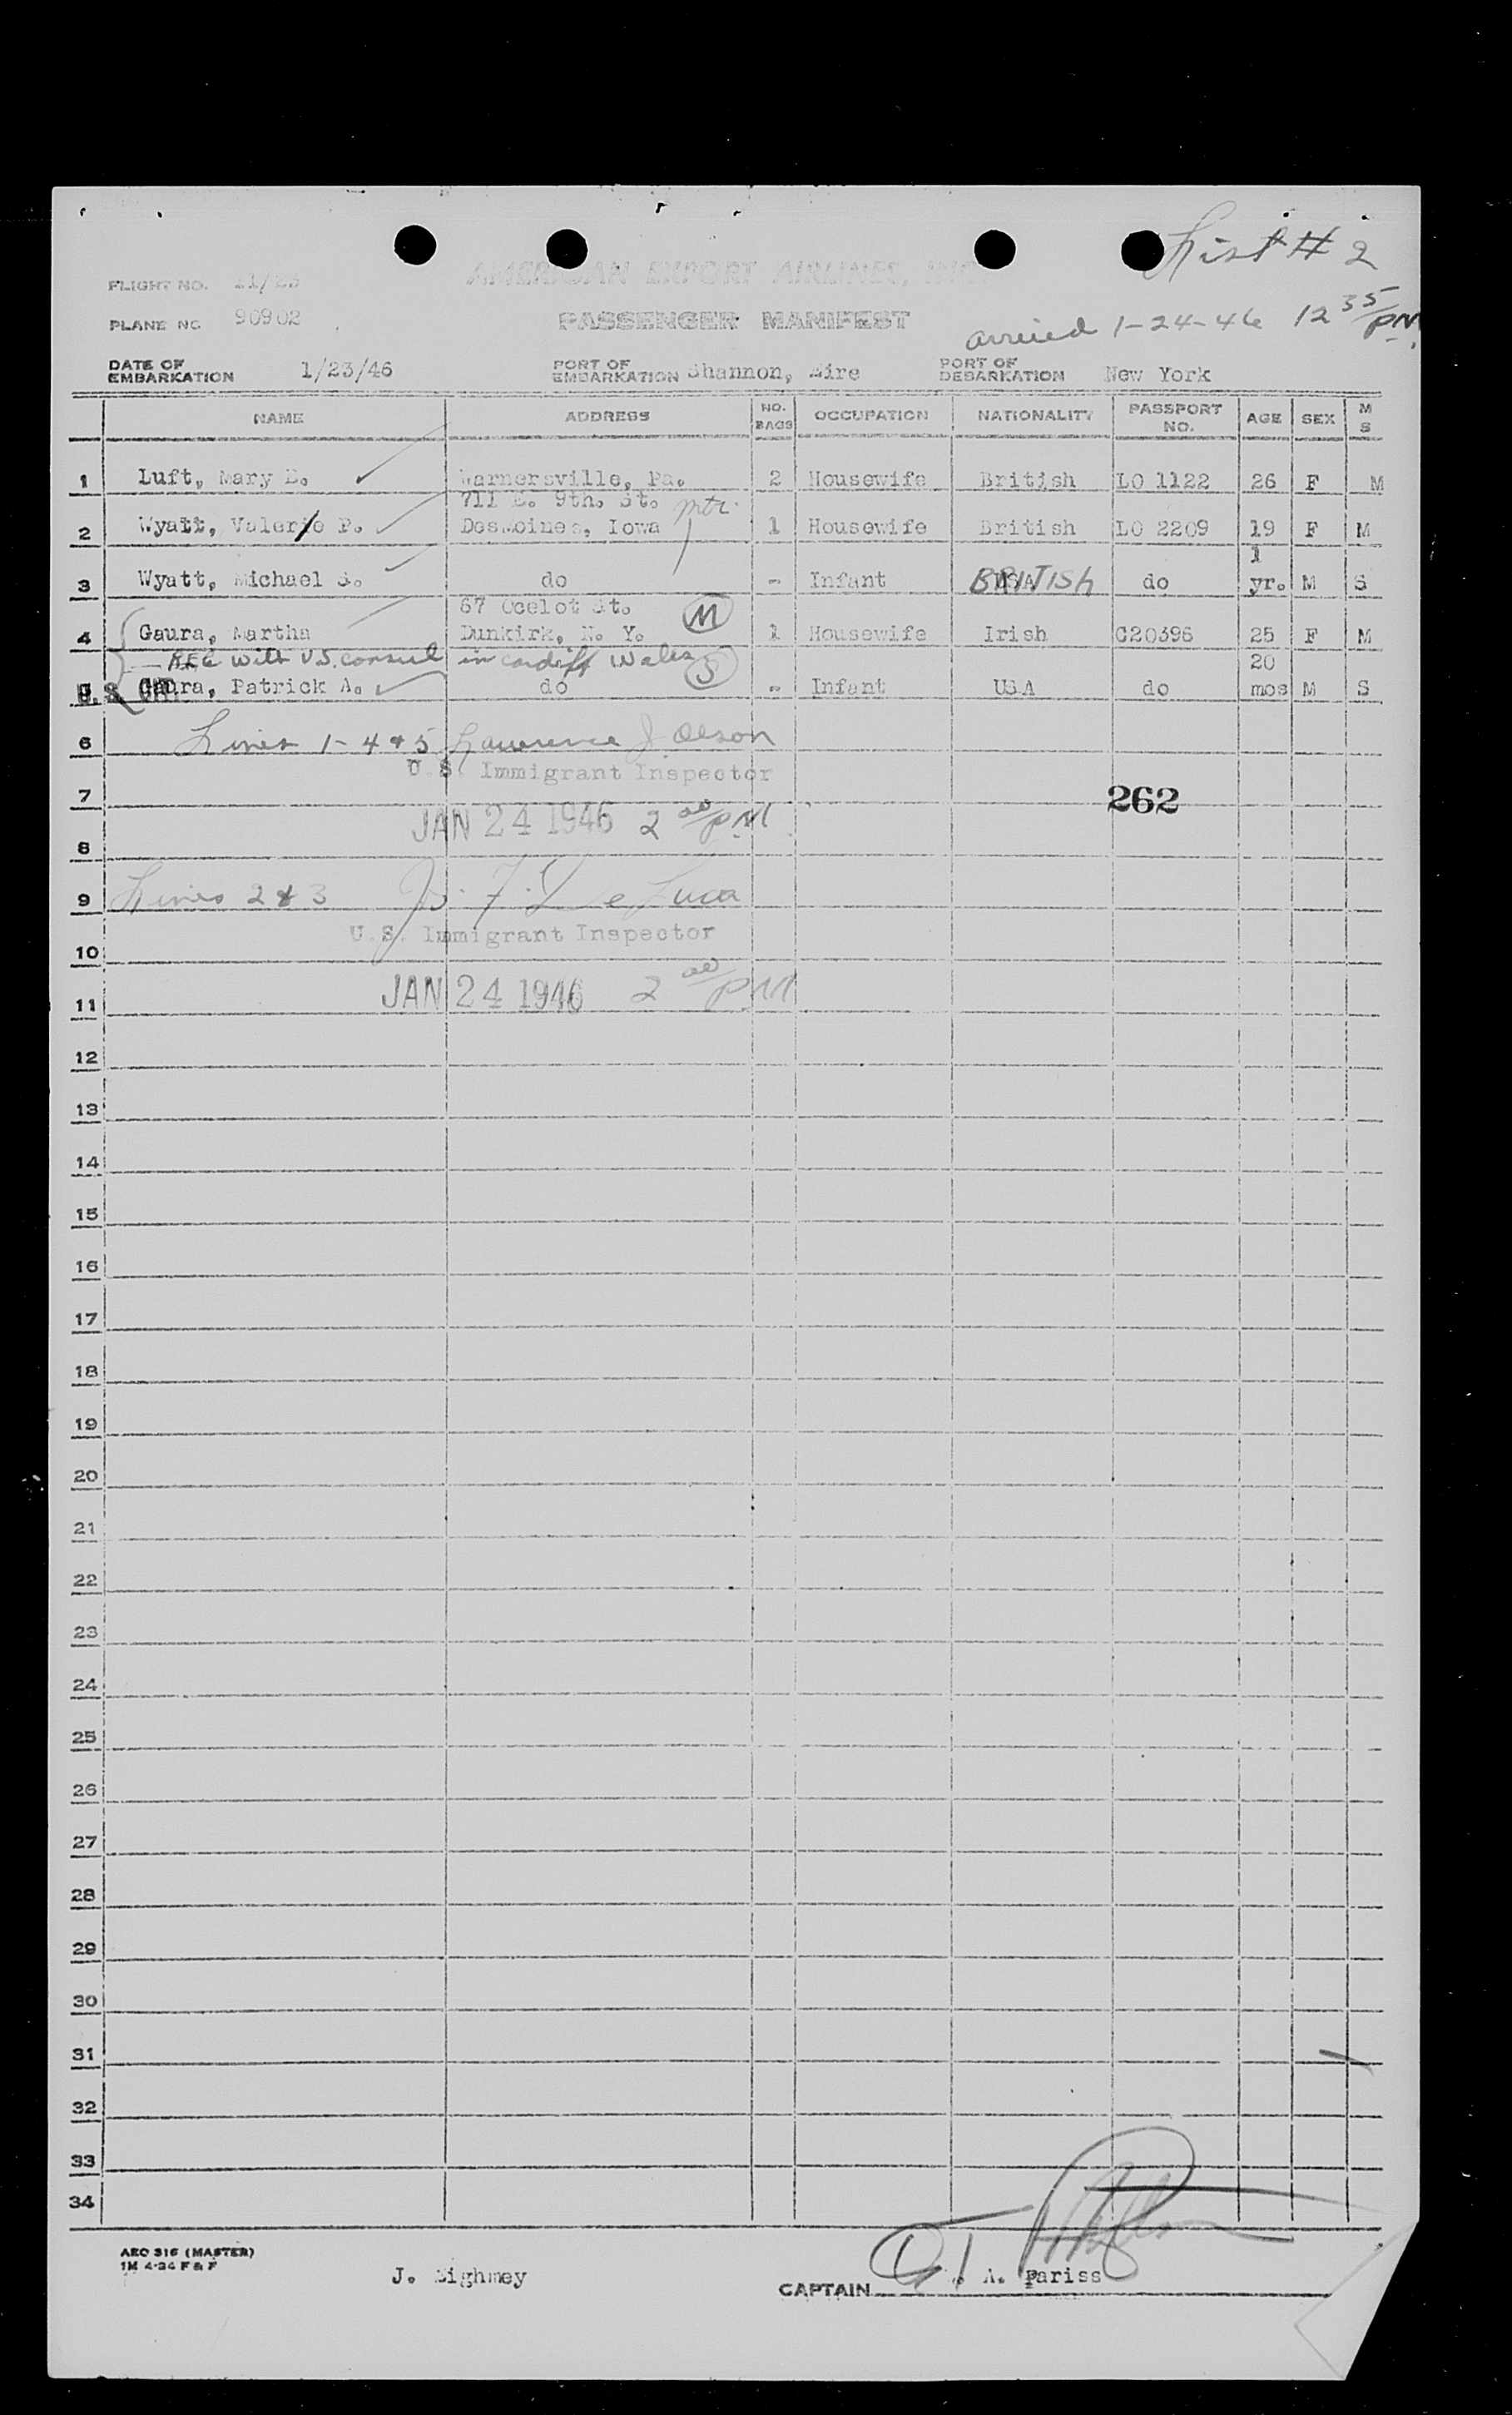 List # 2
FLIGHT NO. 11/23 AMERICAN EXPORT AIRLINES, INC.
PLANE NO 90902 PASSENGER MANIFEST arrived 1-24-46 12 35/PM.
DATE OF EMBARKATION 1/23/46 PORT OF EMBARKATION Shannon, Eire PORT OF DEBARKATION New York
NAME ADDRESS NO. BAGS OCCUPATION NATIONALITY PASSPORT NO. AGE SEX M S
1 Luft, Mary E. Warnersville, Pa. 2 Housewife British LO 1122 26 F M
711 E. 9th. St. mtr.
2 Wyatt, Valerie P. Desmoines, Iowa 1 Housewife British LO 2209 19 F M
1
3 Wyatt, Michael S. do - Infant BRITISH do yr. M S
67 Ocelot St. M
4 Gaura, Martha Dunkirk, N. Y. 1 Housewife Irish C20396 25 F M
REG with U.S. consul in cardiff Wales S 20
5 Gaura, Patrick A. do - Infant USA do mos M S
6 Lines 1-4 & 5 Lawrence J. Olson
U. S. Immigrant Inspector
7 262
JAN 24 1946 2 00/PM
8
9 Lines 2 & 3 De Luca
U. S. Immigrant Inspector
10
JAN 24 1946 2 00/PM
11
12
13
14
15
16
17
18
19
20
21
22
23
24
25
26
27
28
29
30
31
32
33
34
AEC 316 (MASTER)
1M 4-24 F & F
J. Eighmey CAPTAIN A. Pariss